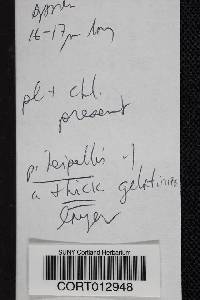 16-17µ long
pl + chl.
present
pileipellis w/
a thick gelatinous
layer
SUNY Cortland Herbarium
CORT012948